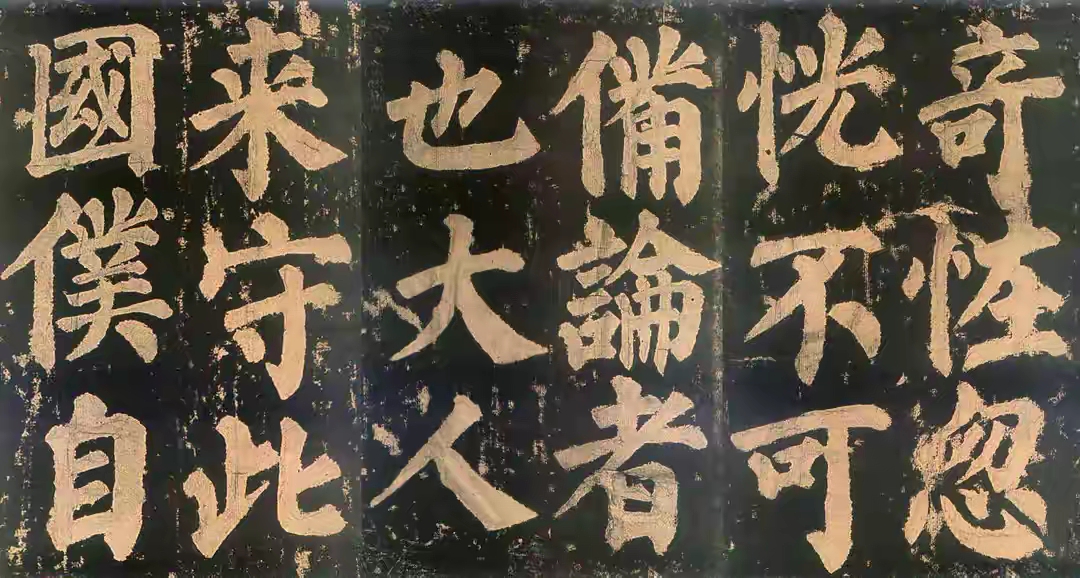 奇恠忽
恍不可
備論者
也大人
来守此
國僕自